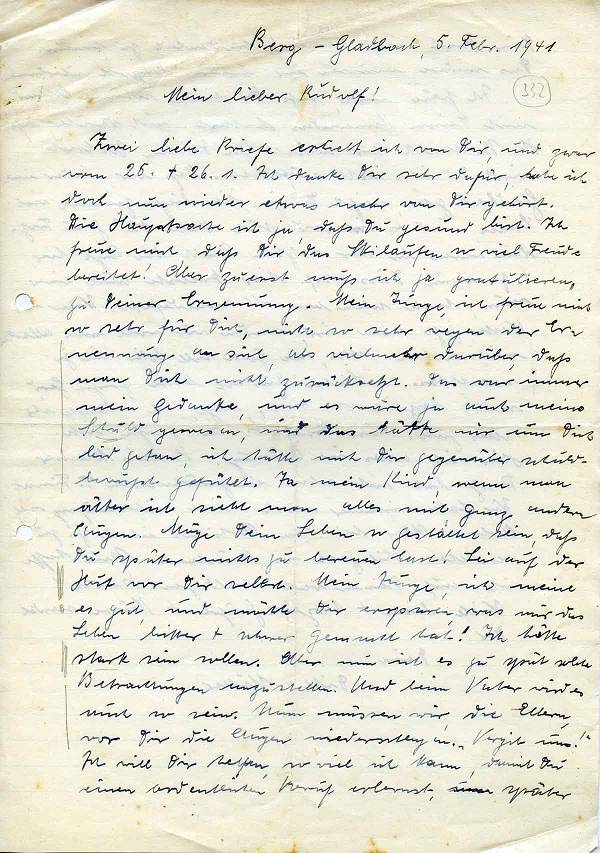 Berg - Gladbach, 5. Febr. 1941
332
Mein lieber Rudolf!
Zwei liebe Briefe erhielt ich von Dir, und zwar
vom 25. + 26. 1. Ich danke Dir sehr dafür, habe ich
doch nun wieder etwas mehr von Dir gehört.
Die Hauptsache ist ja, daß Du gesund bist. Ich
freue mich, daß Dir das Skilaufen so viel Freude
bereitet! Aber zuerst muß ich ja gratulieren,
zu Deiner Ernennung. Mein Junge, ich freue mich
so sehr für Dich, nicht so sehr wegen der Er-
nennung an sich, als vielmehr darüber, daß
man Dich nicht zurücksetzt. Das war immer
mein Gedanke, und es wäre ja auch meine
Schuld gewesen, und das hätte mir um Dich
leid getan, ich hätte mich Dir gegenüber schuld-
bewußt gefühlt. Ja mein Kind, wenn man
älter ist sieht man alles mit ganz andern
Augen. Möge Dein Leben so gestaltet sein, daß
Du später nichts zu bereuen hast! Sei auf der
Hut vor Dir selbst. Mein Junge, ich meine
es gut, und möchte Dir ersparen, was mir das
Leben bitter + schwer gemacht hat! Ich hätte
stark sein sollen. Aber nun ist es zu spät solche
Betrachtungen anzustellen. Und beim Vater wird es
auch so sein. Nun müssen wir, die Eltern,
vor Dir die Augen niederschlagen. "Vergib uns!"
Ich will Dir helfen, so viel ich kann, damit Du
einen ordentlichen Beruf erlernst, später